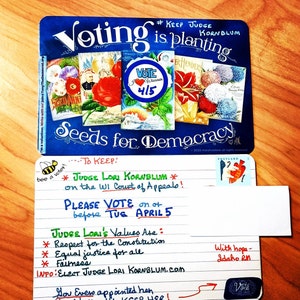 # KEEP JUDGE
KORNBLUM
Voting is planting
VOTE
4/5
Seeds for Democracy
bee a voter!
To KEEP:
* JUDGE LORI KORNBLUM *
on the WI Court of Appeals!
PLEASE VOTE on or
before TUE APRIL 5
JUDGE LORI'S Values Are:
* Respect for the Constitution
* Equal justice for all
* Fairness
INFO: ELECT JUDGE LORI KORNBLUM.COM
Gov Evers appointed her
With hope-
Vote